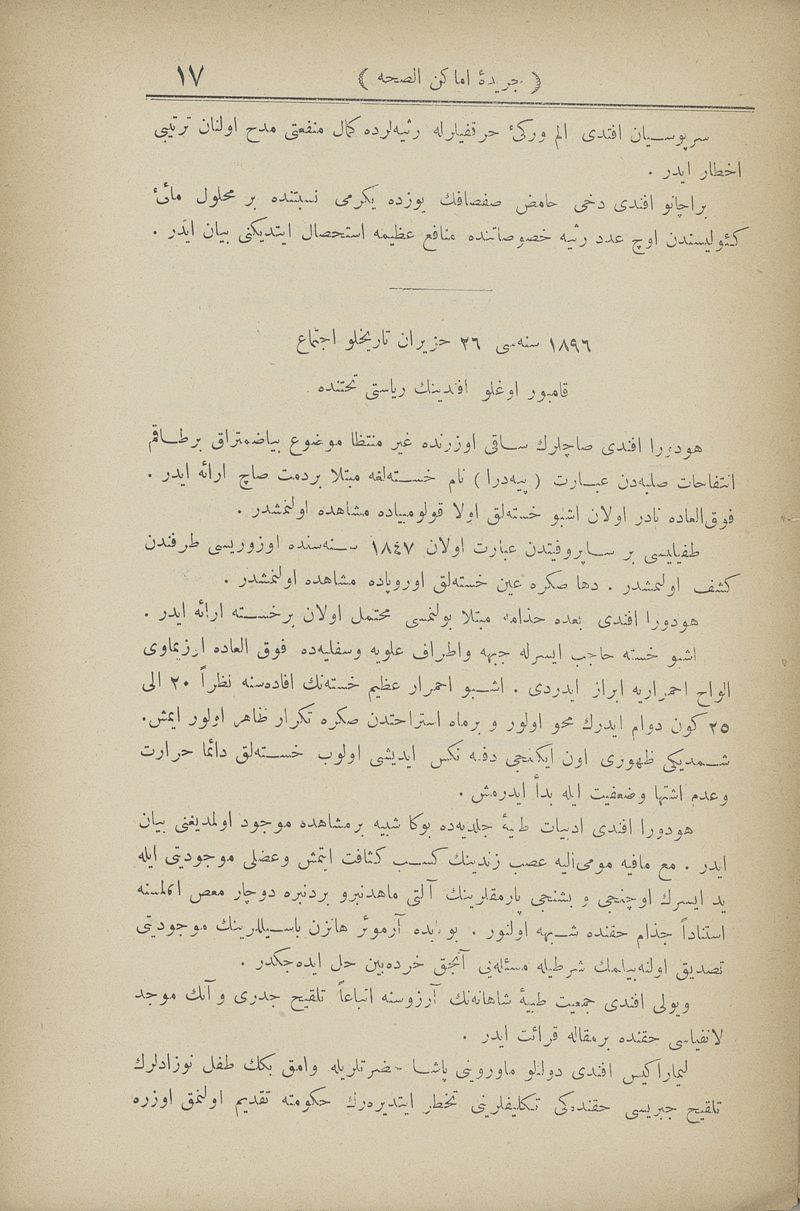 ﴿ جريدۀ اماكن الصحه ﴾ ١٧
سرپوسيان افندی الم وركیٔ حرتفيارله رثيه‌لرده كمال منفعتی مدح اولنان ترتيبی
اخطار ايدر .
براچانو افندی دخی حامض صفصافك يوزده يكرمی نسبتنده بر محلول مائیٔ
كئوليسندن اوچ عدد رثيه خصوصاتنده منافع عظيمه استحصال ايتديكنی بيان ايدر .
١٨٩٦ سنه‌سی ٢٦ حزيران تاريخلو اجتماع
قامبور اوغلو افندينك رياستی تحتنده .
هودورا افندی صاچلرك ساقی اوزرنده غير منتظا موضوع بياضمتراق برطاقم
انتفاحات صلبه‌دن عبارت ( پيه‌درا ) نام خسته‌لغه مبتلا بردمت صاچ ارائه ايدر .
فوق‌العاده نادر اولان اشبو خسته‌لق اولا قولومبياده مشاهده اولنمشدر .
طفيليسی بر ساپروفيتدن عبارت اولان ١٨٤٧ سنه‌سنده اوزوريسی طرفندن
كشف اولنمشدر . دها صكره عين خسته‌لق اوروپاده مشاهده اولنمشدر .
هودورا افندی بعده حذامه مبتلا بولنمسی محتمل اولان برخسته ارائه ايدر .
اشبو خسته حاجب ايسرله جبهه واطراف علويه وسفليه‌ده فوق العاده ارزيماوی
الواح احمراريه ابراز ايدردی . اشبو احمرار عظيم خسته‌نك افاده‌سنه نظراً ٢٠ الی
٢٥ كون دوام ايدرك محو اولور و برماه استراحتدن صكره تكرار ظاهر اولور ايمش.
شمديكی ظهوری اون ايكنجی دفعه نكس ايديشی اولوب خسته‌لق دائما حرارت
وعدم اشتها وضعفيت ايله بدأ ايدرمش .
هودورا افندی ادبيات طبيۀ جلديه‌ده بوكا شبيه برمشاهده موجود اولمديغنی بيان
ايدر . مع مافيه مومی‌اليه عصب زندينك كسب كثافت ايتمش وعضلی موجوديتی ايله
يد ايسرك اوچنجی و بشنجی پارمقلرينك آلتی ماهدنبرو بردنبره دوچار معص اكلمسنه
استناداً جذام حقنده شبهه اولنور . بوبابده آرموئر هانزن باسيللرينك موجوديتی
تصديق اولنه‌بيلمك شرطيله مسئله‌يی آنجق خرده‌بين حل ايده‌جكدر .
ويولی افندی جمعيت طبيۀ شاهانه‌نك آرزوسنه اتباعاً تلقيح جدری و آنك موجد
لانفياسی حقنده برمقاله قرائت ايدر .
ليماراكيس افندی دولتلو ماورويِنی پاشا حضرتلريله وامق بكك طفل نوزادلرك
تلقيح جبريسی حقنده‌كی تكليفلرينی تخطر ايتديره‌رك حكومته تقديم اولنمق اوزره